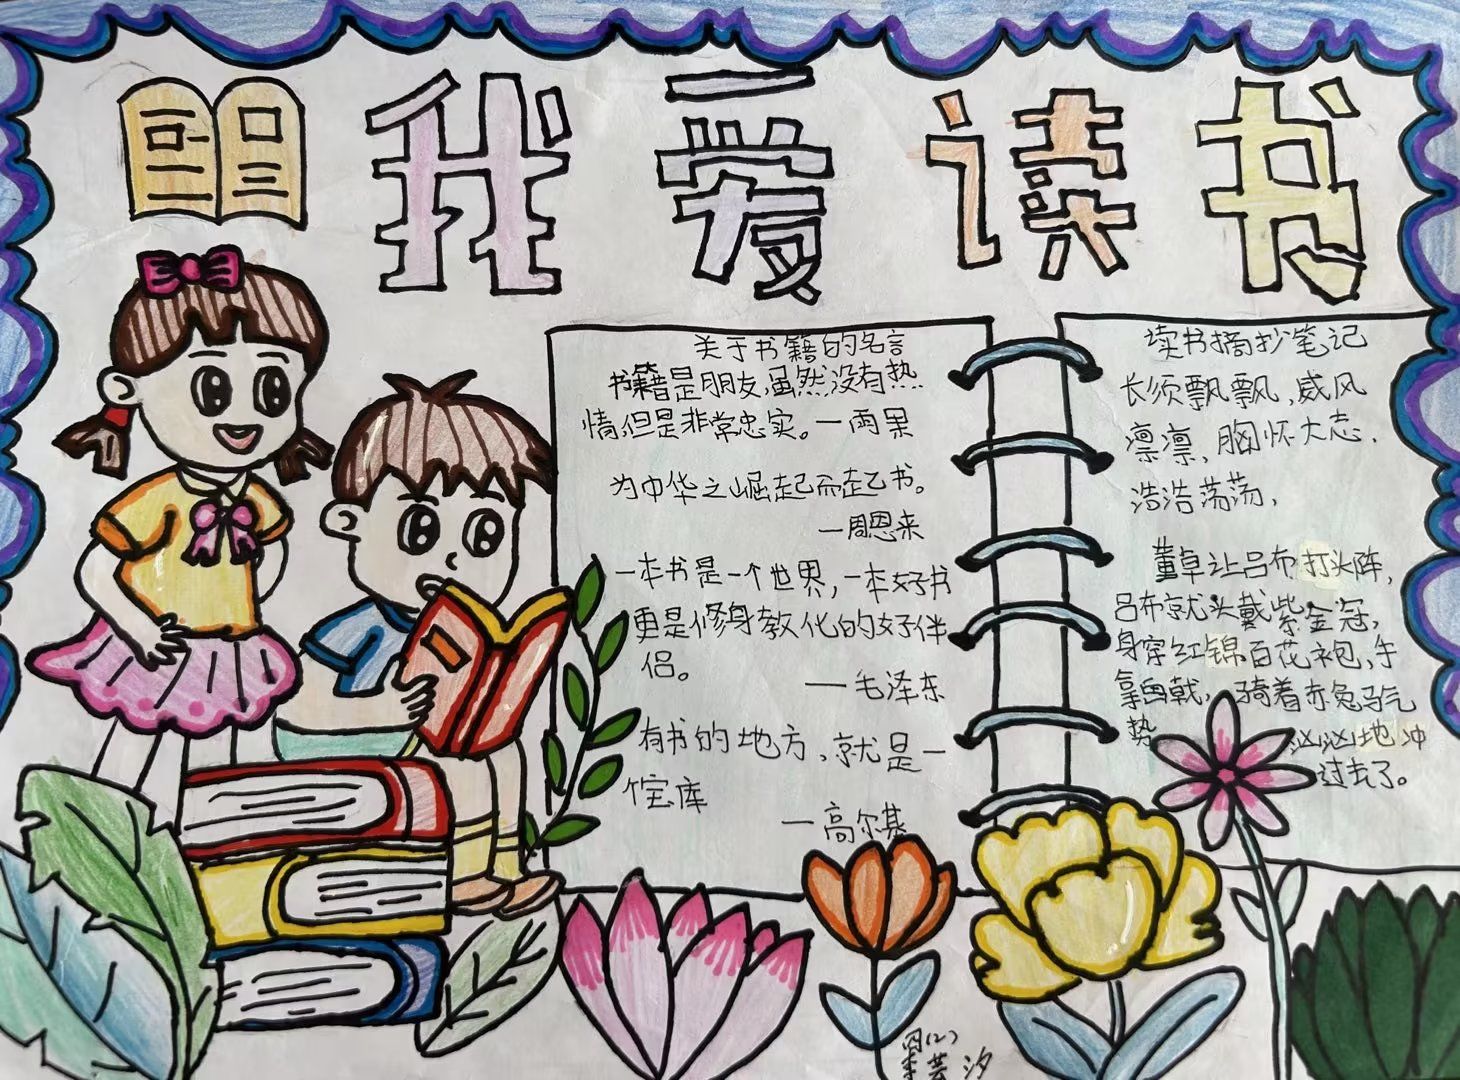 我爱读书
关于书籍的名言
书籍是朋友,虽然没有热
情,但是非常忠实。一雨果
为中华之崛起而起书。
一周恩来
一本书是一个世界,一本好书
更是修身教化的好伴
侣。
一毛泽东
有书的地方、就是一
宝库
一高尔基
读书摘抄笔记
长须飘飘,威风
凛凛,胸怀大志、
浩浩荡荡,
董卓让吕布打头阵,
吕布就头戴紫金冠,
身穿红锦百花袍,手
拿画戟,骑着赤兔马气
势
汹汹地冲
过去了。
四(2)
李芸汐